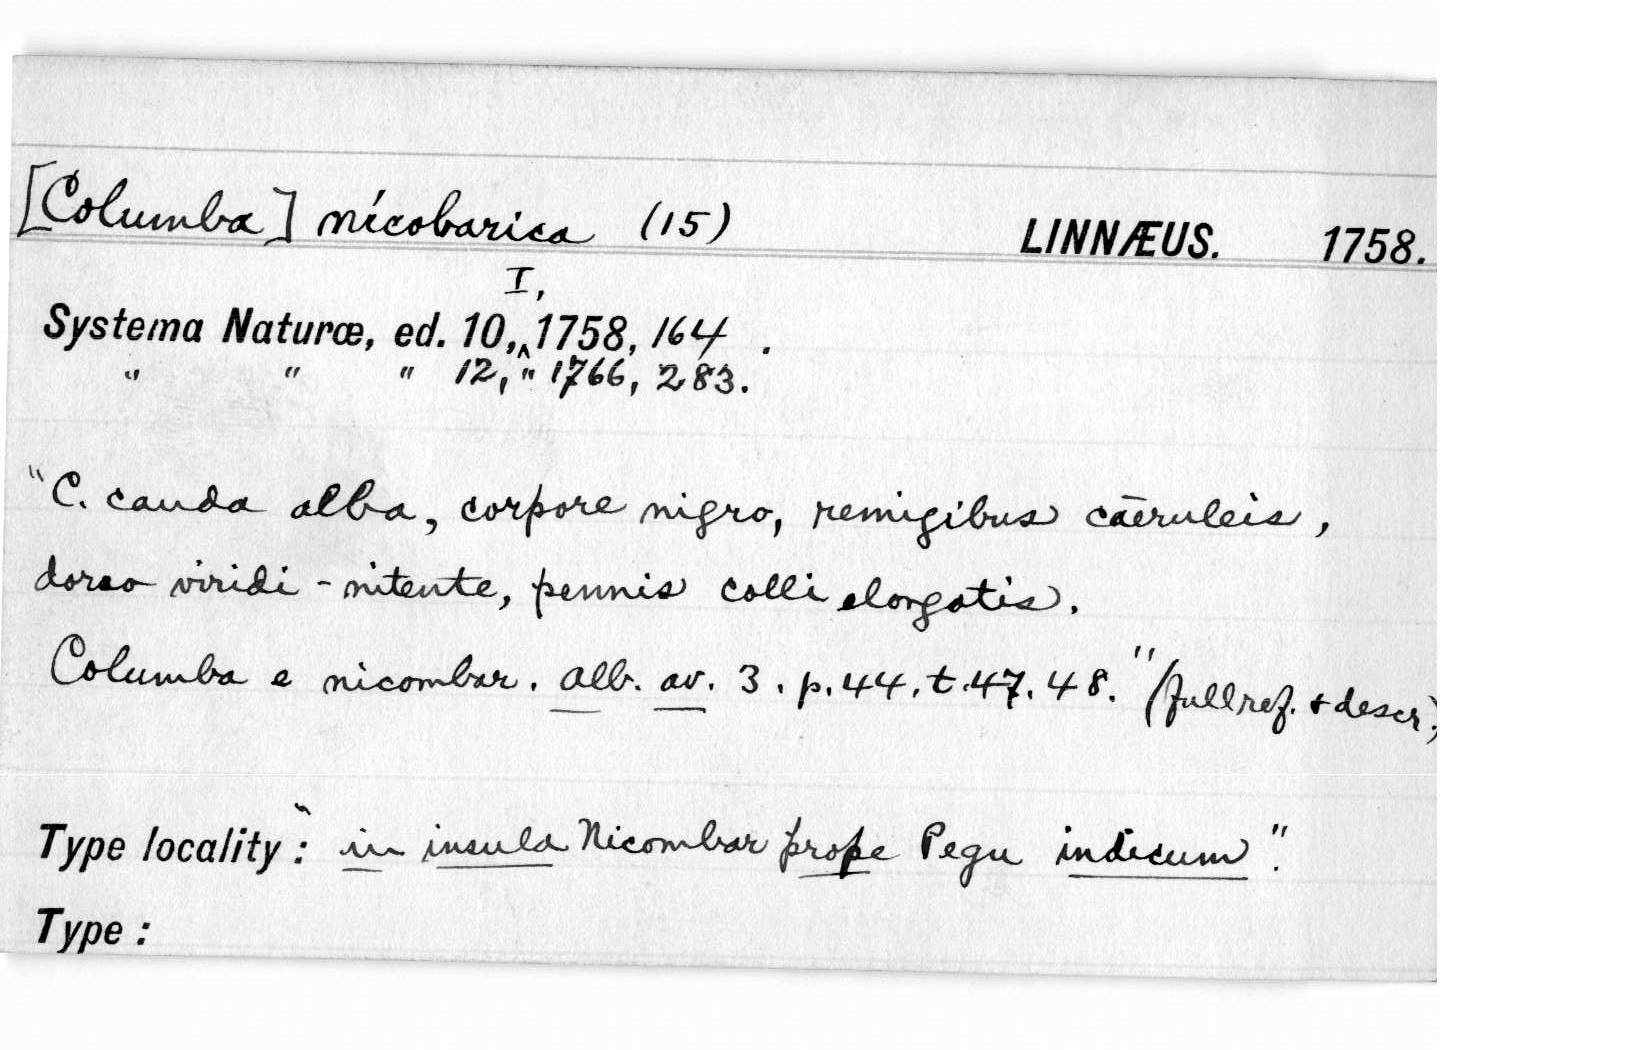 [Columba] nicobarica (15) LINNÆUS. 1758.
I,
Systema Naturæ, ed. 10,^1758, 164 .
" " " 12, " 1766, 283.
"C. cauda alba, corpore nigro, remigibus cāeruleis,
dorso viridi-nitente, pennis colli elongatis.
Columba e nicombar. Alb. av. 3. p.44. t.47.48." (full ref. + descr.)
Type locality: "in insula Nicombar prope Pegu indicum".
Type: